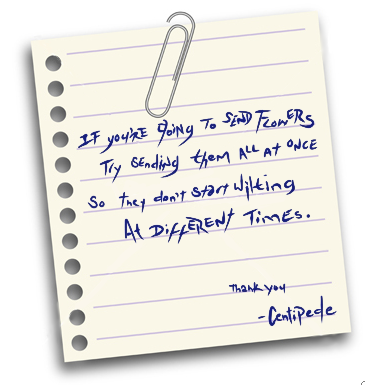 IF you're going To SEND Flowers
Try sending them All At once
So they don't start wilting
At DIFFERENT Times.
Thank you
-Centipede